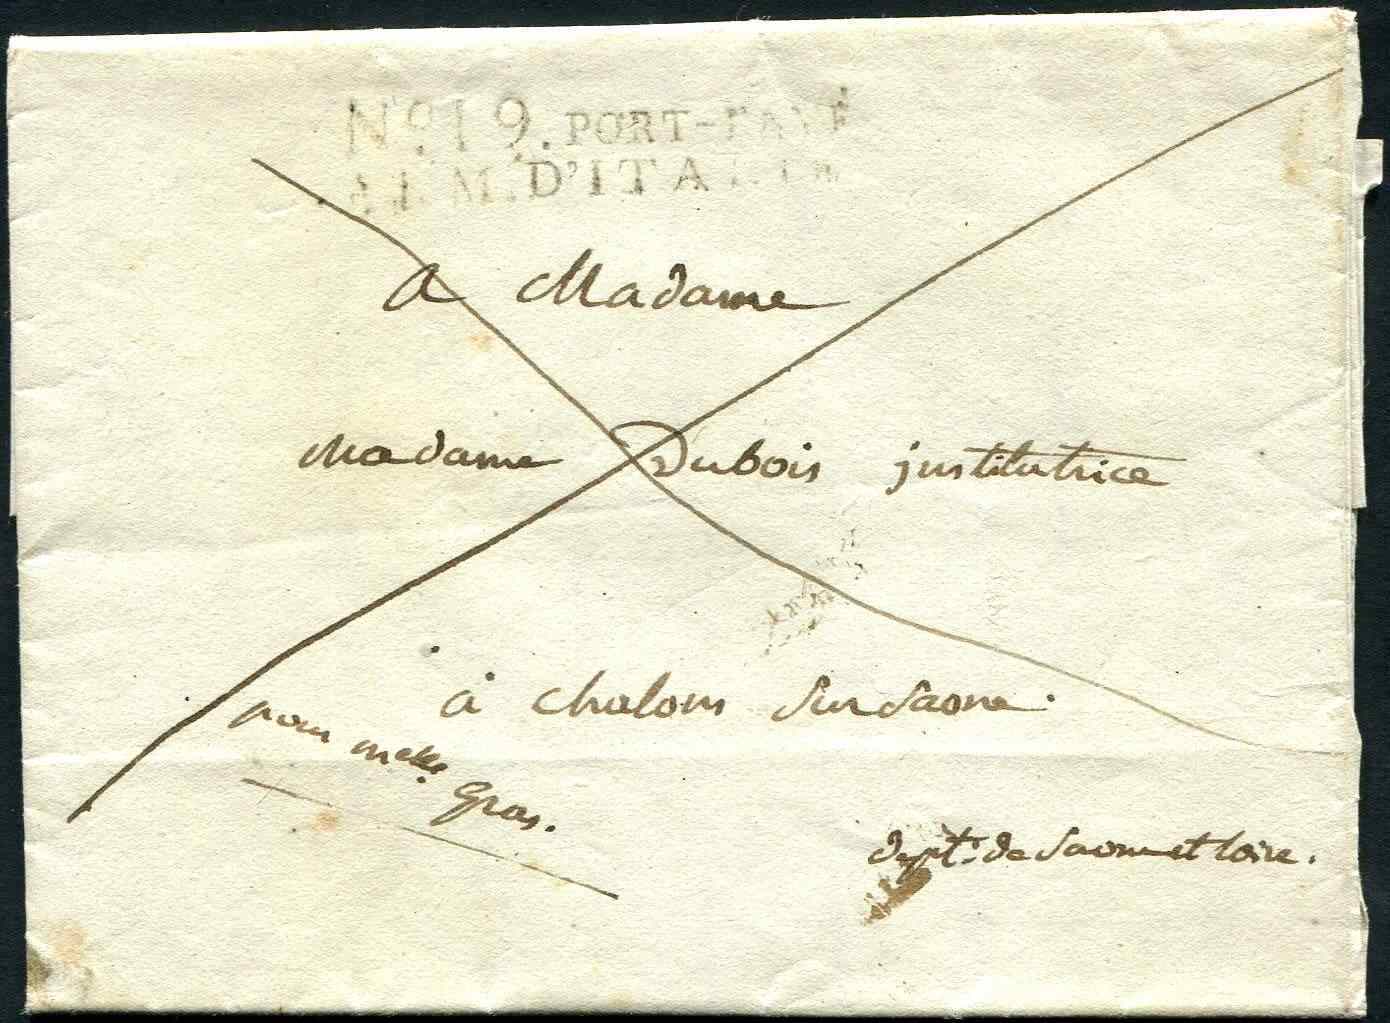 No. 19. PORT-PAYÉ
ARM. D'ITALIE
A Madame
Madame Dubois institutrice
à chalons sur saone.
pour melle
gras.
dept. de saone et loire.